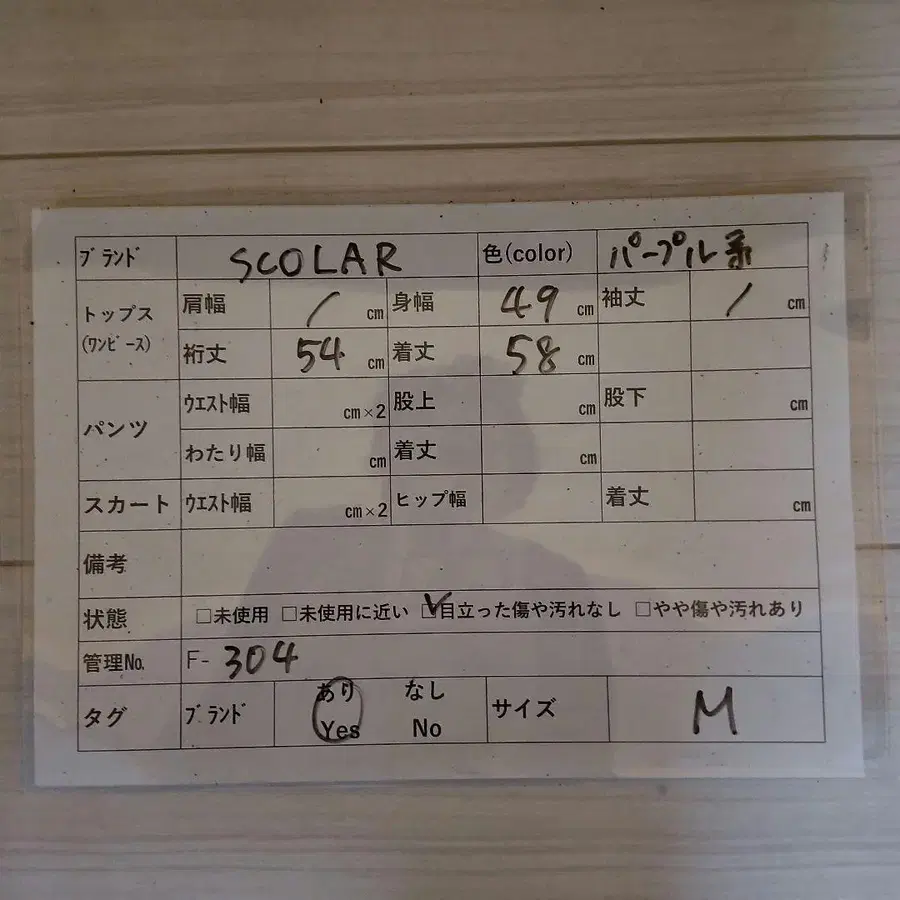 ブランド SCOLAR 色(color) パープル系
トップス(ワンピース) 肩幅 / cm 身幅 49 cm 袖丈 / cm
裄丈 54 cm 着丈 58 cm
パンツ ウエスト幅 cm×2 股上 cm 股下 cm
わたり幅 cm 着丈 cm
スカート ウエスト幅 cm×2 ヒップ幅 着丈 cm
備考
状態 □未使用 □未使用に近い ☑目立った傷や汚れなし □やや傷や汚れあり
管理No. F- 304
タグ ブランド あり Yes なし No サイズ M